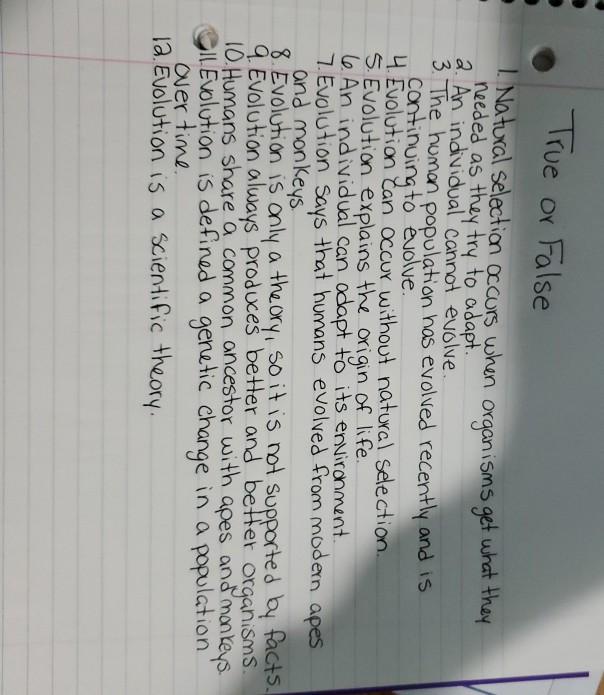 True or False
1. Natural selection occurs when organisms get what they
needed as they try to adapt.
2. An individual cannot evolve.
3. The human population has evolved recently and is
continuing to evolve.
4. Evolution can occur without natural selection.
5. Evolution explains the origin of life.
6. An individual can adapt to its environment.
7. Evolution says that humans evolved from modern apes
and monkeys
8. Evolution is only a theory, so it is not supported by facts.
9. Evolution always produces better and better organisms.
10. Humans share a common ancestor with apes and monkeys.
11. Evolution is defined a genetic change in a population
over time.
12. Evolution is a scientific theory.